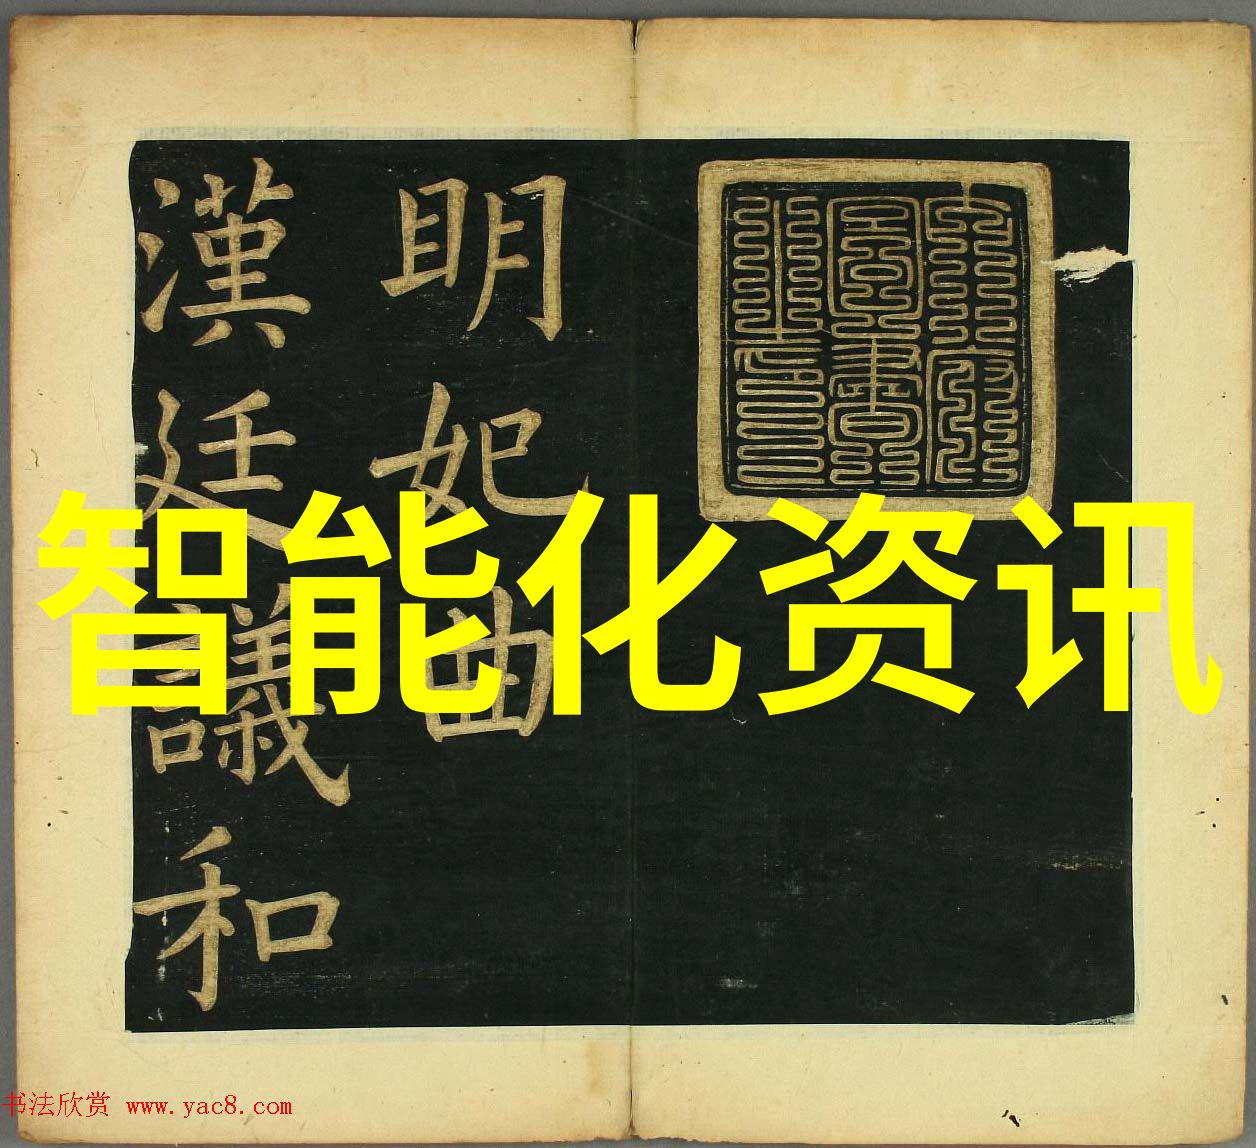 眀妃曲
漢廷議和
智能化资讯
书法欣赏 www.yac8.com